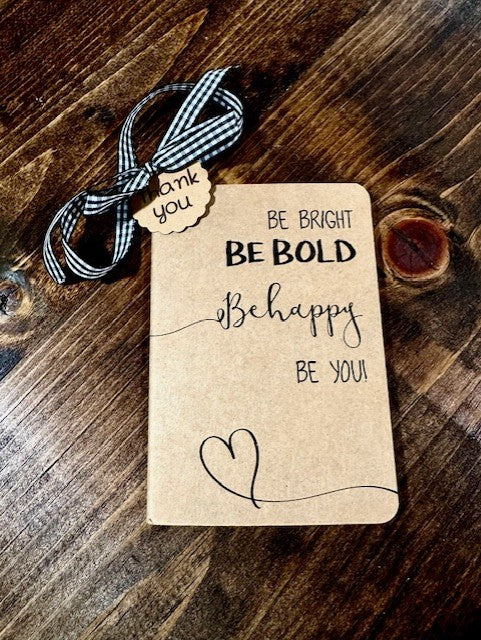 Thank
you
BE BRIGHT
BE BOLD
Be happy
BE YOU!